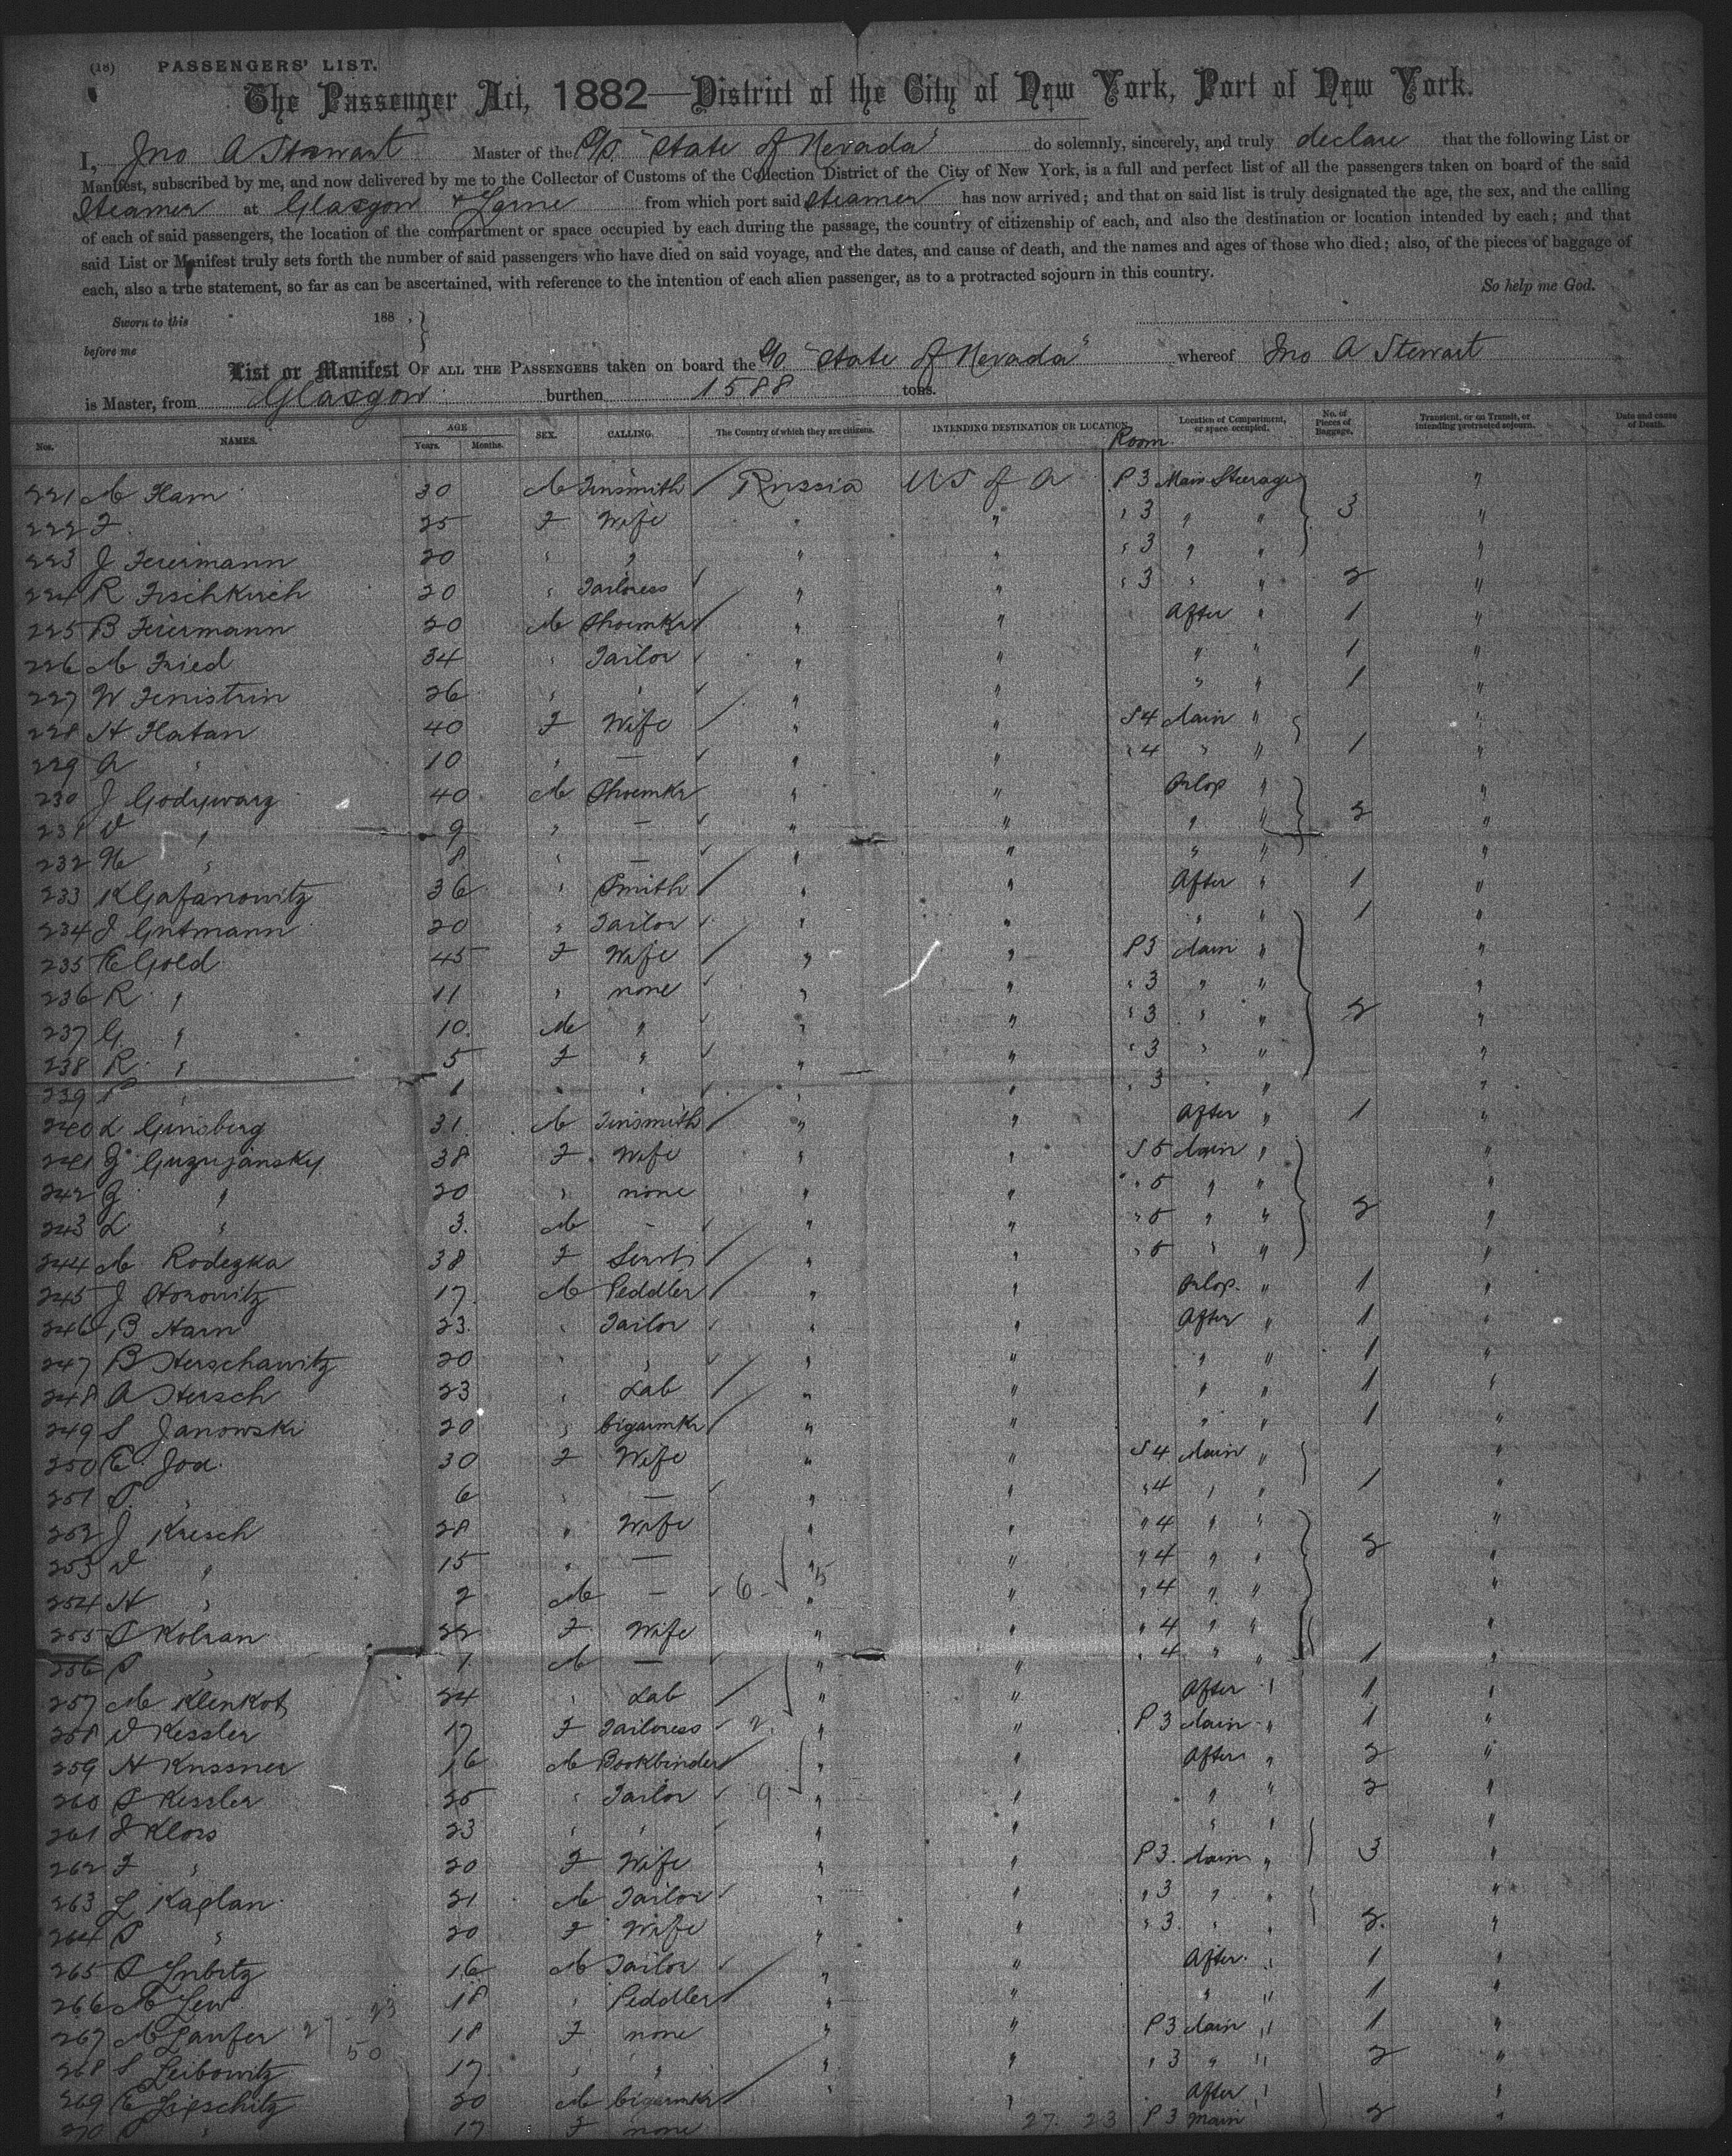 (18) PASSENGERS' LIST.
The Passenger Act, 1882—District of the City of New York, Port of New York.
I, Jno A Stewart Master of the S/S "State of Nevada" do solemnly, sincerely, and truly declare that the following List or
Manifest, subscribed by me, and now delivered by me to the Collector of Customs of the Collection District of the City of New York, is a full and perfect list of all the passengers taken on board of the said
Steamer at Glasgow & Larne from which port said Steamer has now arrived; and that on said list is truly designated the age, the sex, and the calling
of each of said passengers, the location of the compartment or space occupied by each during the passage, the country of citizenship of each, and also the destination or location intended by each; and that
said List or Manifest truly sets forth the number of said passengers who have died on said voyage, and the dates, and cause of death, and the names and ages of those who died; also, of the pieces of baggage of
each, also a true statement, so far as can be ascertained, with reference to the intention of each alien passenger, as to a protracted sojourn in this country. So help me God.
Sworn to this 188
before me
List or Manifest OF ALL THE PASSENGERS taken on board the S/S "State of Nevada" whereof Jno A Stewart
is Master, from Glasgow burthen 1588 tons.
Nos. NAMES. AGE Years. Months. SEX. CALLING. The Country of which they are citizens. INTENDING DESTINATION OR LOCATION. Room. Location of Compartment, or space occupied. No. of Pieces of Baggage. Transient, or on Transit, or intending protracted sojourn. Date and cause of Death.
221 M Ham 30 M Tinsmith Russia US of A P 3 Main Steerage "
222 F 25 F Wife " " " 3 " " 3 "
223 J Feiermann 20 " " " " " 3 " " "
224 R Fischkirch 20 " Tailoress " " " 3 " " 2 "
225 B Feiermann 20 M Shoemkr " " After " 1 "
226 M Fried 34 " Tailor " " " " 1 "
227 W Fenistrin 26 " " " " " " 1 "
228 H Flatan 40 F Wife " " S 4 Main " "
229 A " 10 " — " " " 4 " " 1 "
230 J Godywarz 40 M Shoemkr " " Orlop " "
231 D " 9 " — " " " " 2 "
232 " 8 " — " " " " "
233 K Gafanowitz 36 " Smith " " After " 1 "
234 J Gutmann 20 " Tailor " " " " 1 "
235 E Gold 45 F Wife " " P 3 Main " "
236 R " 11 " none " " " 3 " " "
237 G " 10 M " " " " 3 " " 2 "
238 R " 5 F " " " " 3 " " "
239 " 1 " " " " " 3 " " "
240 L Ginsberg 31 M Tinsmith " " After " 1 "
241 G Guzujansky 38 F Wife " " S 5 Main " "
242 G " 20 " none " " " 5 " " "
243 L " 3 M - " " " 5 " " 2 "
244 M Rodezka 38 F Servt " " " 5 " " "
245 J Horowitz 17 M Peddler " " Orlop " 1 "
246 B Harn 23 " Tailor " " After " 1 "
247 B Herschawitz 20 " " " " " " 1 "
248 A Hersch 23 " Lab " " " " 1 "
249 S Janowski 20 " Cigarmkr " " " " 1 "
250 E Jox 30 F Wife " " S 4 Main " "
251 S " 6 " — " " " 4 " " 1 "
252 J Kresch 28 " Wife " " " 4 " " "
253 D " 15 " — " " " 4 " " 2 "
254 H " 2 M — 6 " " " 4 " " "
255 S Kolran 22 F Wife " " " 4 " " "
256 S " 1 M — " " " 4 " " 1 "
257 M Klenkot 24 " Lab " " After " 1 "
258 D Kessler 17 F Tailoress 2 " " P 3 Main " 1 "
259 H Kussner 16 M Bookbinder " " After " 2 "
260 S Kessler 25 " Tailor 9 " " " " 2 "
261 J Klors 23 " " " " " " "
262 F " 20 F Wife " " P 3 Main " 3 "
263 L Kaplan 21 M Tailor " " " 3 " " "
264 S " 20 F Wife " " " 3 " " 2 "
265 S Lubitz 16 M Tailor " " After " 1 "
266 M Lew 18 " Peddler " " " " 1 "
267 M Laufer 27 - 23 18 F none " " P 3 Main " 1 "
50
268 S Leibowitz 17 " " " " " 3 " " 2 "
269 E Lipschitz 20 M Cigarmkr " " After " "
270 S " 17 F none 27. 23 P 3 Main 2 "